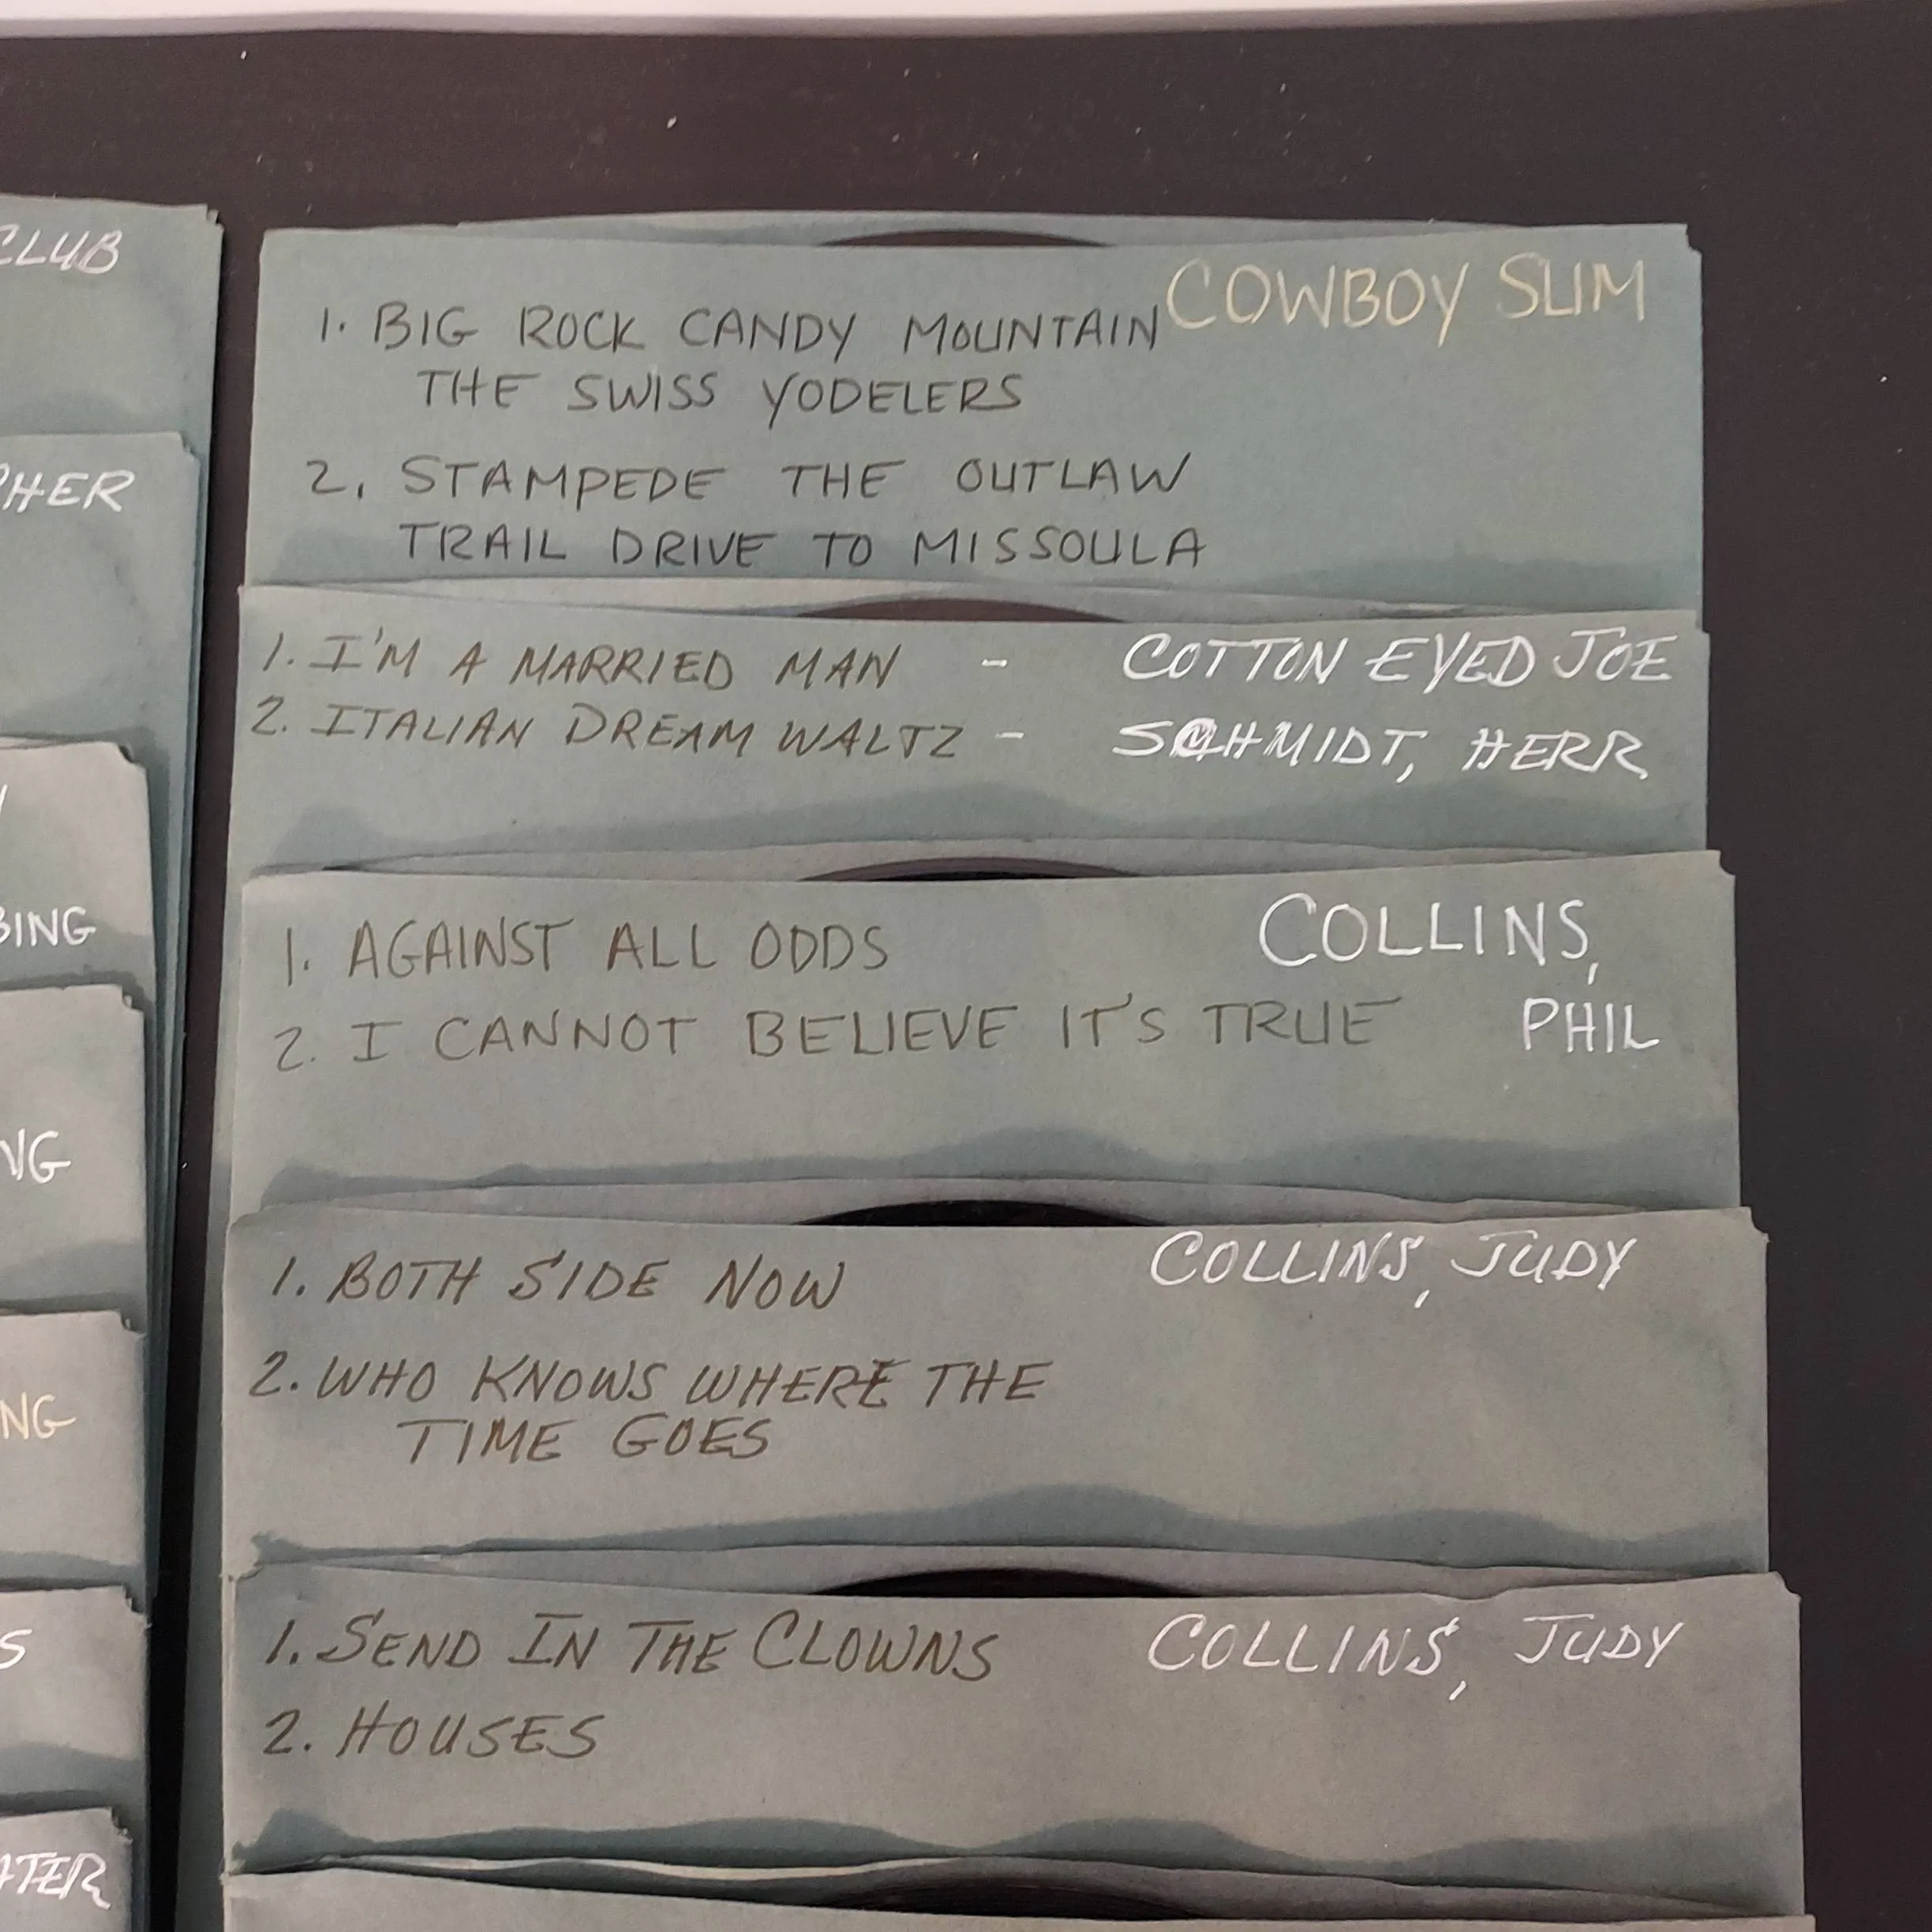 CLUB
PHER
BING
NG
NG
S
ATER
COWBOY SLIM
1. BIG ROCK CANDY MOUNTAIN
THE SWISS YODELERS
2. STAMPEDE THE OUTLAW
TRAIL DRIVE TO MISSOULA
1. I'M A MARRIED MAN - COTTON EYED JOE
2. ITALIAN DREAM WALTZ - SCHMIDT, HERR
1. AGAINST ALL ODDS COLLINS,
2. I CANNOT BELIEVE IT'S TRUE PHIL
1. BOTH SIDE NOW COLLINS, JUDY
2. WHO KNOWS WHERE THE
TIME GOES
1. SEND IN THE CLOWNS COLLINS, JUDY
2. HOUSES